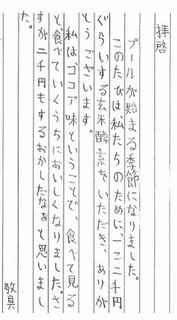 拝啓
プールが始まる季節になりました。
このたびは私たちのために、一こ二千円
ぐらいする玄米酵素をいただき、ありが
とうございます。
私はココア味ということで、食べて見る
と食べていくうちにおいしくなりました。さ
すが二千円もするおかしだなぁと思いまし
た。
敬具